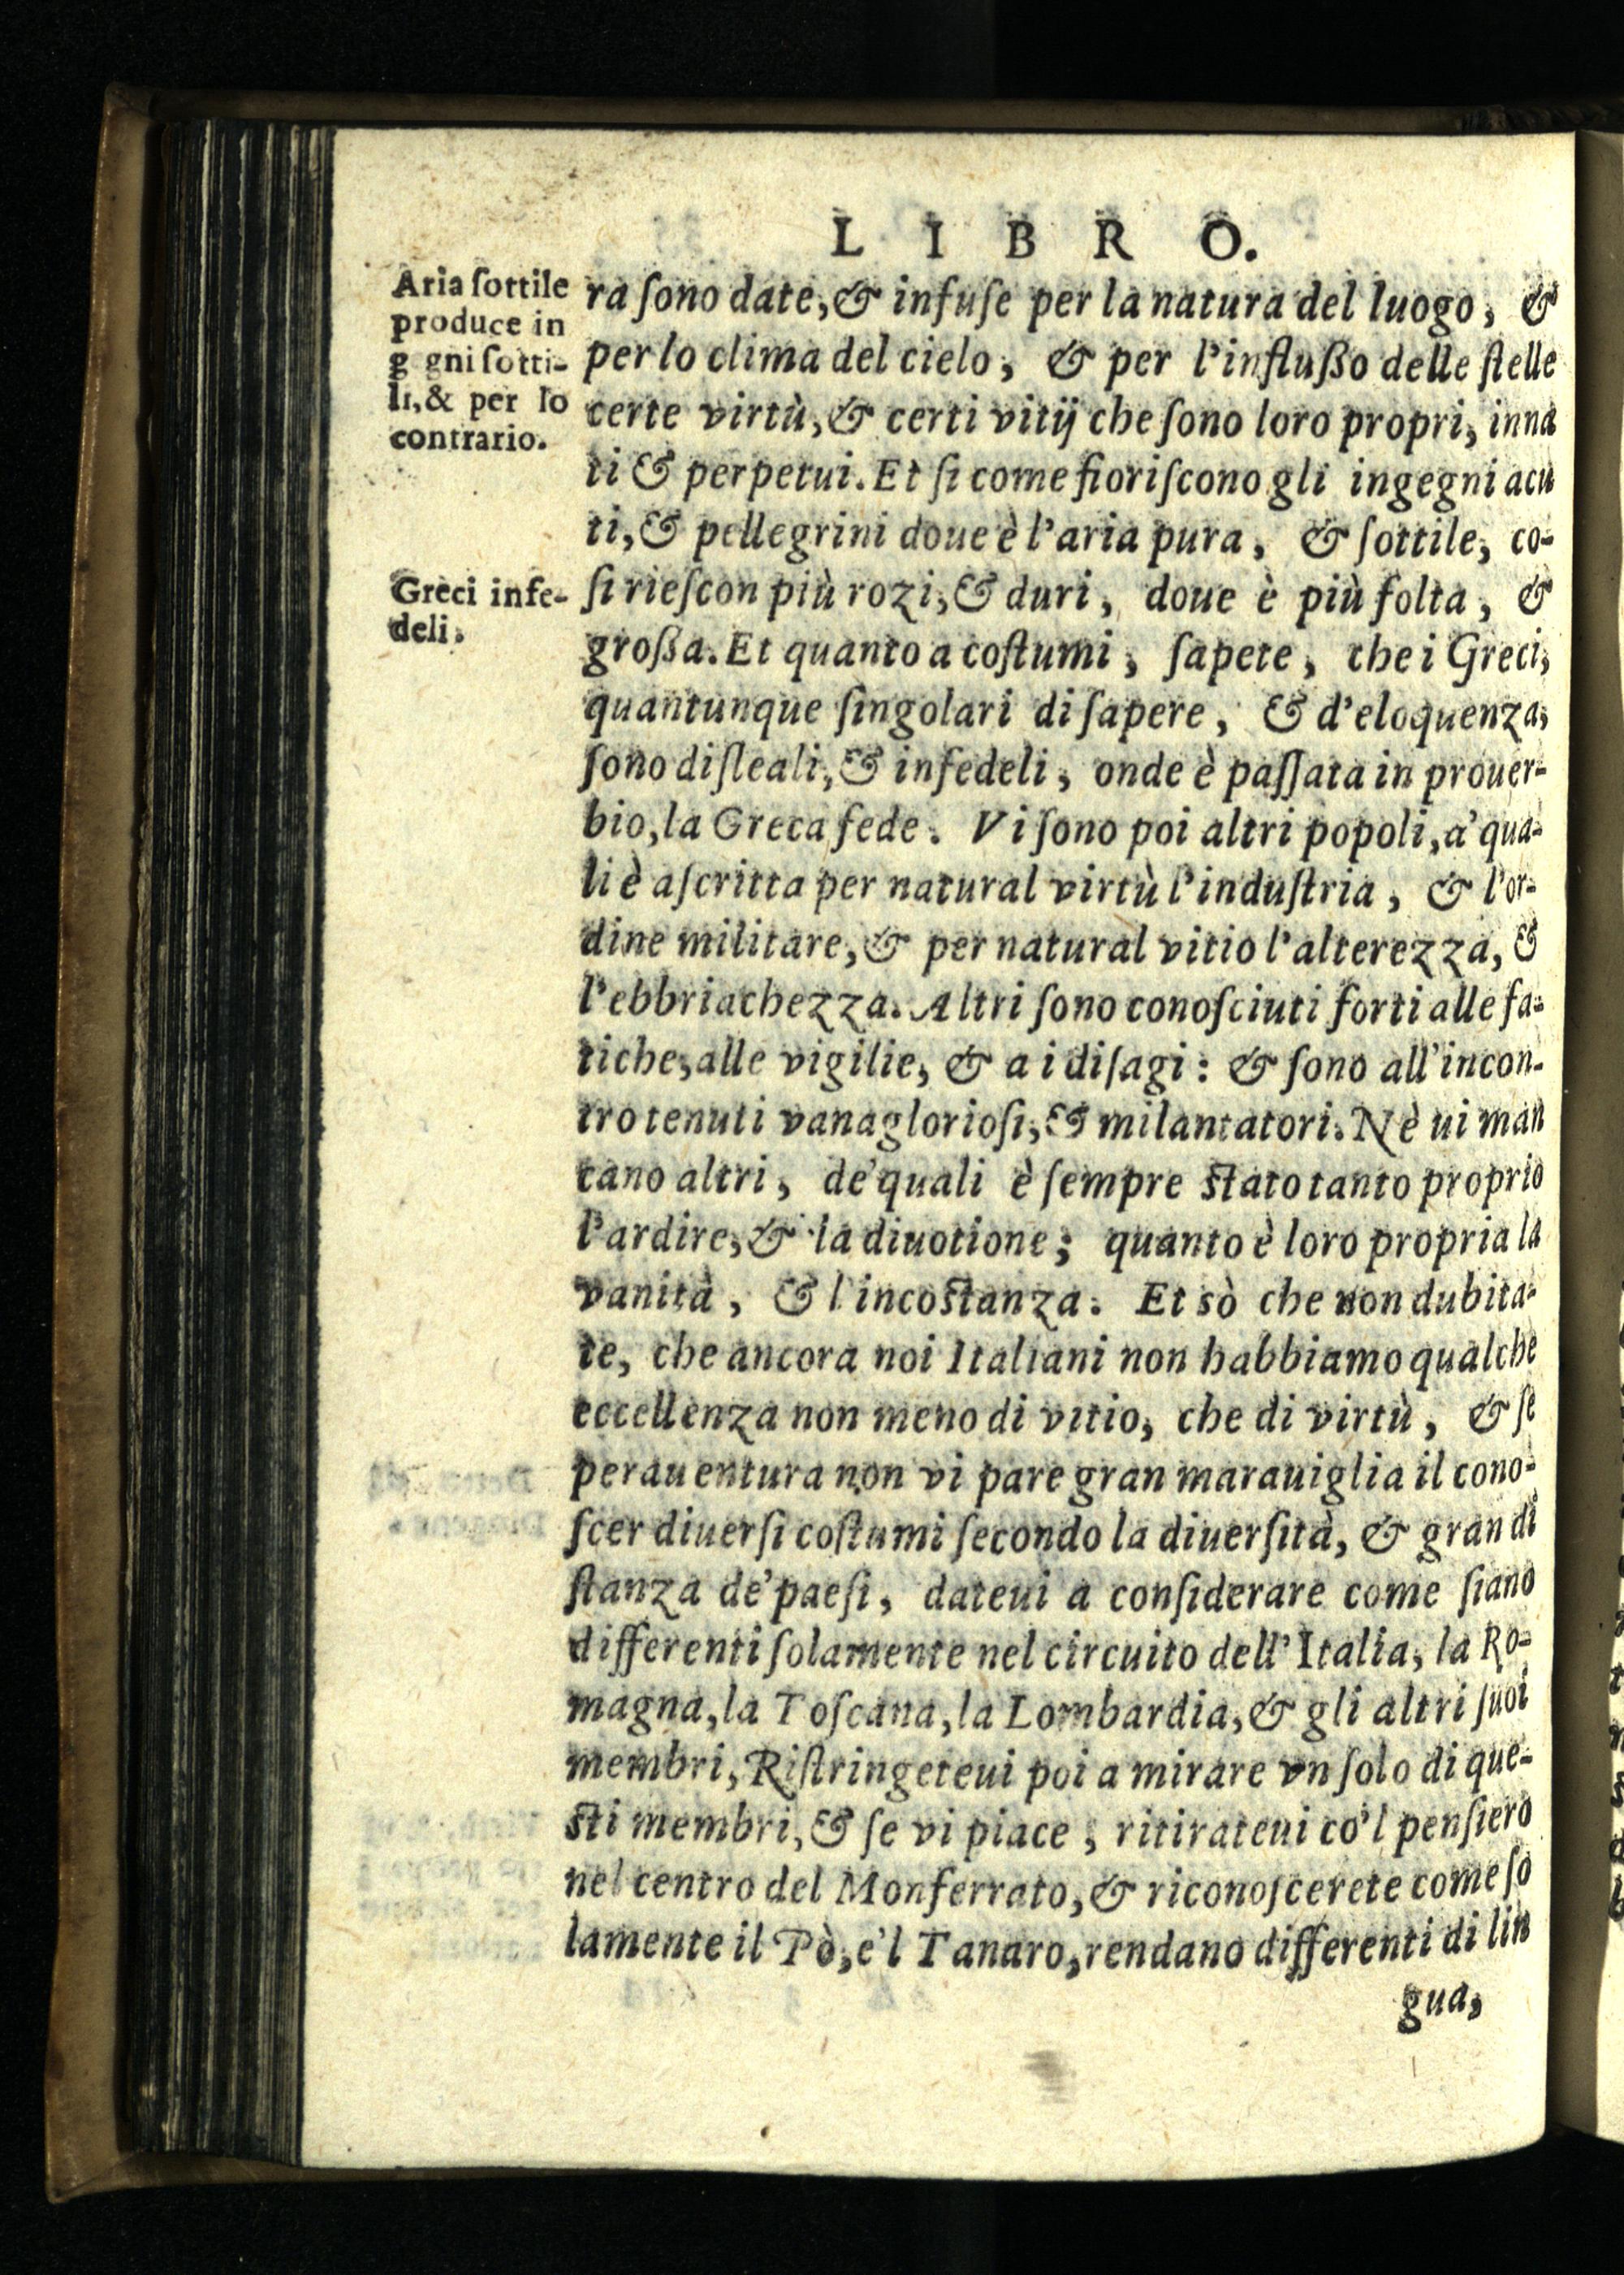 LIBRO.
Aria ſottile
produce in
g gni ſotti-
li,& per lo
contrario.
Greci infe-
deli.
ra ſono date,& infuſe per la natura del luogo, &
per lo clima del cielo, & per l'influßo delle ſtelle
certe virtù,& certi vitij che ſono loro propri, inna
ti & perpetui. Et ſi come fioriſcono gli ingegni acu
ti,& pellegrini doue è l'aria pura, & ſottile, co-
ſi rieſcon più rozi,& duri, doue è più folta, &
großa. Et quanto a coſtumi, ſapete, che i Greci,
quantunque ſingolari di ſapere, & d'eloquenza,
ſono diſleali,& infedeli, onde è paſſata in prouer-
bio,la Greca fede. Vi ſono poi altri popoli,a' qua-
li è aſcritta per natural virtù l'induſtria, & l'or-
dine militare,& per natural vitio l'alterezza, &
l'ebbriachezza. Altri ſono conoſciuti forti alle fa-
tiche,alle vigilie, & a i diſagi: & ſono all'incon-
tro tenuti vanaglorioſi,& milantatori. Nè ui man
cano altri, de'quali è ſempre ſtato tanto proprio
l'ardire,& la diuotione; quanto è loro propria la
vanità, & l'incoſtanza. Et sò che non dubita-
te, che ancora noi Italiani non habbiamo qualche
eccellenza non meno di vitio, che di virtù, & ſe
perauentura non vi pare gran marauiglia il cono-
ſcer diuerſi coſtumi ſecondo la diuerſità, & gran di
ſtanza de'paeſi, dateui a conſiderare come ſiano
differenti ſolamente nel circuito dell'Italia, la Ro-
magna,la Toſcana,la Lombardia,& gli altri ſuoi
membri, Riſtringeteui poi a mirare vn ſolo di que-
ſti membri,& ſe vi piace, ritirateui co'l penſiero
nel centro del Monferrato,& riconoſcerete come ſo
lamente il Pò,e'l Tanaro,rendano differenti di lin
gua,